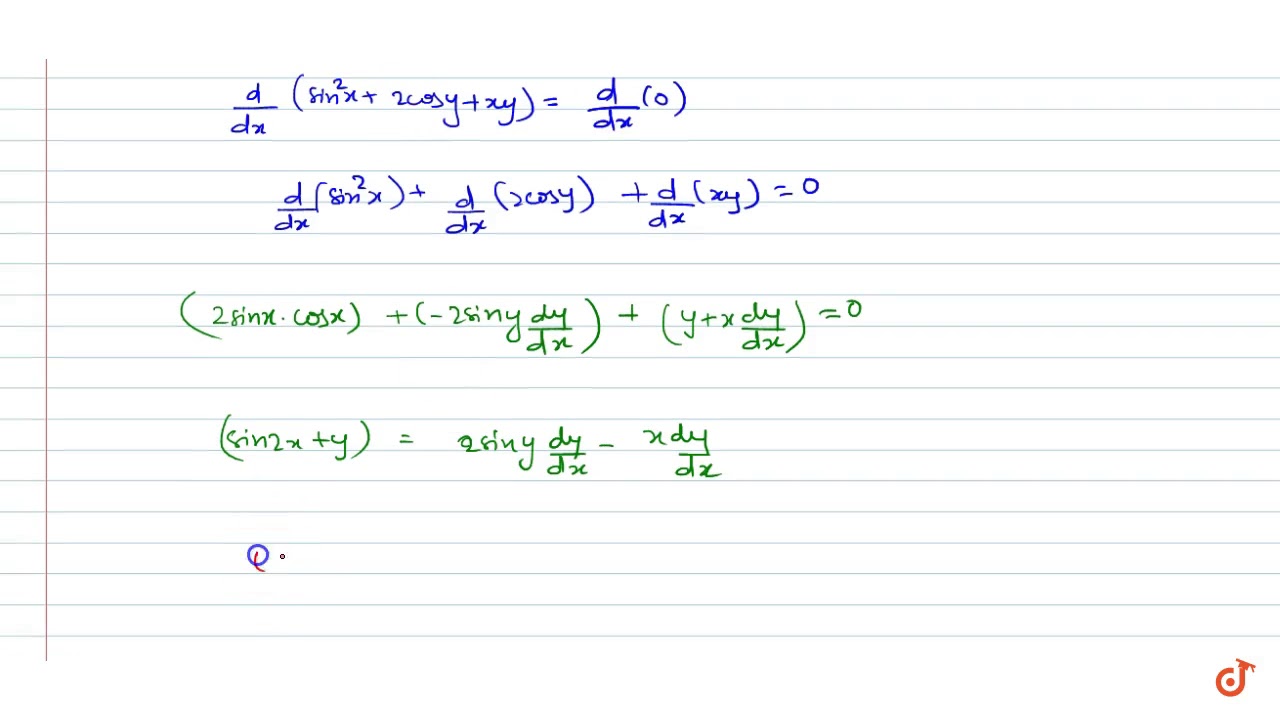 d/dx (sin²x + 2cosy + xy) = d/dx (0)
d/dx (sin²x) + d/dx (2cosy) + d/dx (xy) = 0
(2sinx · cosx) + (-2siny dy/dx) + (y + x dy/dx) = 0
(sin2x + y) = 2siny dy/dx - x dy/dx
(